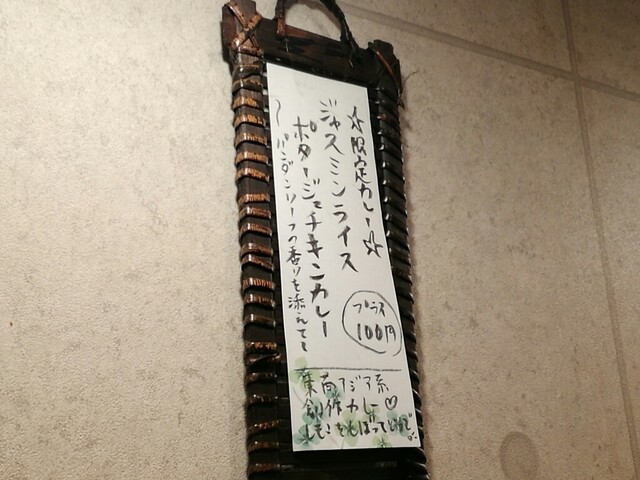 ☆限定カレー☆
ジャスミンライス
ポタージュチキンカレー
～パンダンリーフの香りを添えて～
プライ
100円
東南アジア系
創作カレー♡